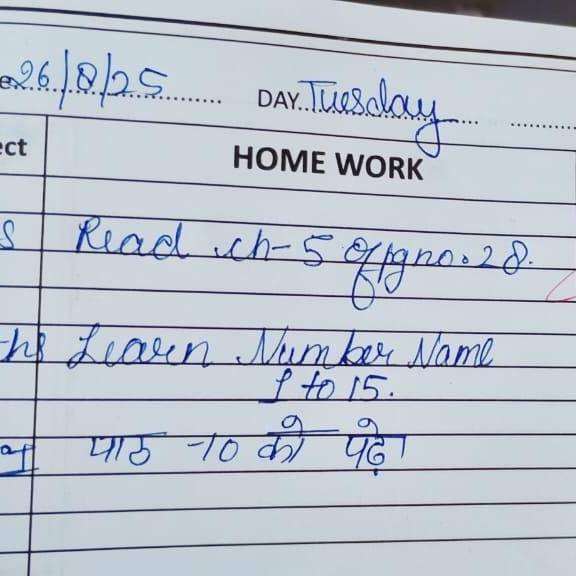 e 26/8/25 DAY Tuesday
ect HOME WORK
s Read ch-5 of pgno. 28.
ths Learn Number Name
1 to 15.
पाठ -10 को पढ़े।